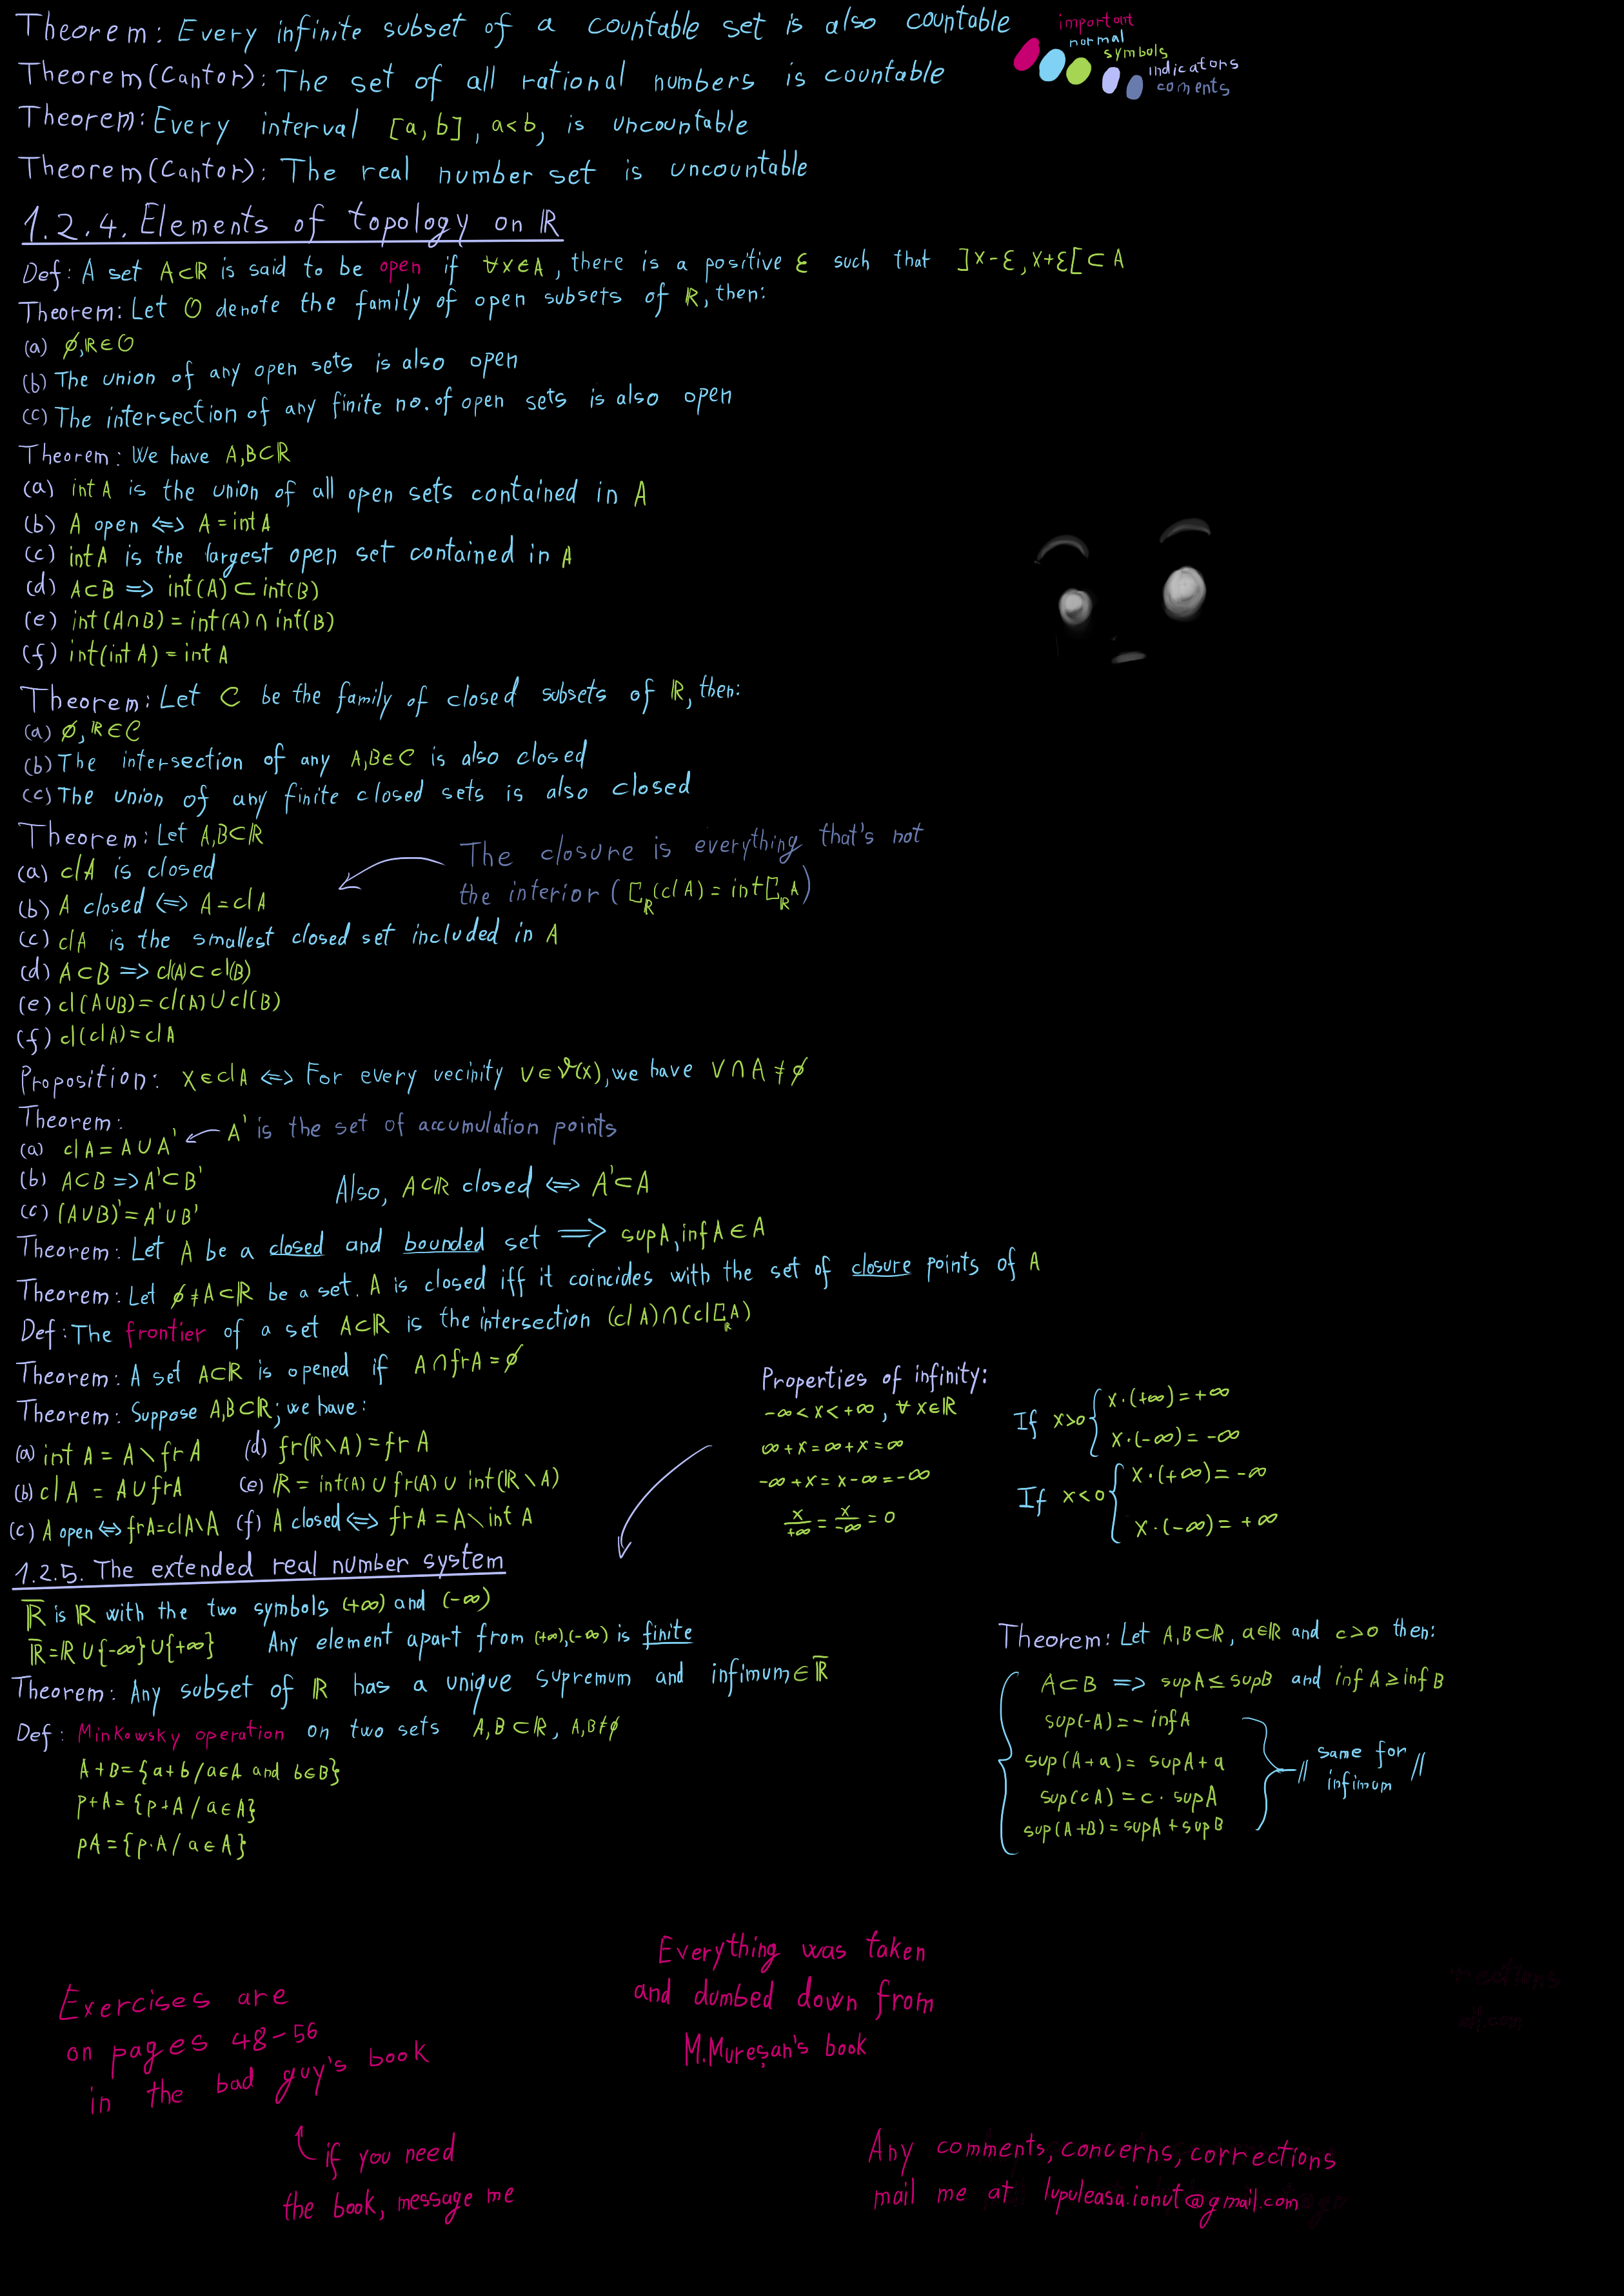 Theorem: Every infinite subset of a countable set is also countable
important
normal
symbols
indicators
coments
Theorem(Cantor): The set of all rational numbers is countable
Theorem: Every interval [a, b], a<b, is uncountable
Theorem(Cantor): The real number set is uncountable
1.2.4. Elements of topology on ℝ
Def: A set A⊂ℝ is said to be open if ∀x∈A, there is a positive ε such that ]x-ε, x+ε[ ⊂ A
Theorem: Let O denote the family of open subsets of ℝ, then:
(a) ∅,ℝ∈O
(b) The union of any open sets is also open
(c) The intersection of any finite no. of open sets is also open
Theorem: We have A,B⊂ℝ
(a) int A is the union of all open sets contained in A
(b) A open <=> A = int A
(c) int A is the largest open set contained in A
(d) A⊂B => int(A) ⊂ int(B)
(e) int(A∩B) = int(A) ∩ int(B)
(f) int(int A) = int A
Theorem: Let C be the family of closed subsets of ℝ, then:
(a) ∅, ℝ∈C
(b) The intersection of any A,B∈C is also closed
(c) The union of any finite closed sets is also closed
Theorem: Let A,B⊂ℝ
The closure is everything that's not
the interior (∁_ℝ(cl A) = int ∁_ℝ A)
(a) cl A is closed
(b) A closed <=> A = cl A
(c) cl A is the smallest closed set included in A
(d) A⊂B => cl(A)⊂cl(B)
(e) cl(A∪B) = cl(A) ∪ cl(B)
(f) cl(cl A) = cl A
Proposition: x∈cl A <=> For every vecinity V∈𝒱(x), we have V∩A ≠ ∅
Theorem:
(a) cl A = A∪A' ← A' is the set of accumulation points
(b) A⊂B => A'⊂B'
Also, A⊂ℝ closed <=> A'⊂A
(c) (A∪B)' = A'∪B'
Theorem: Let A be a closed and bounded set => sup A, inf A ∈ A
Theorem: Let ∅≠A⊂ℝ be a set. A is closed iff it coincides with the set of closure points of A
Def: The frontier of a set A⊂ℝ is the intersection (cl A)∩(cl ∁_ℝ A)
Theorem: A set A⊂ℝ is opened if A∩frA = ∅
Theorem: Suppose A,B⊂ℝ; we have:
(a) int A = A \ fr A (d) fr(ℝ\A) = fr A
(b) cl A = A∪frA (e) ℝ = int(A) ∪ fr(A) ∪ int(ℝ\A)
(c) A open <=> frA = clA\A (f) A closed <=> frA = A\int A
Properties of infinity:
-∞ < x < +∞, ∀x∈ℝ
∞ + x = ∞ + x = ∞
-∞ + x = x - ∞ = -∞
x/+∞ = x/-∞ = 0
If x>0 { x·(+∞) = +∞
x·(-∞) = -∞
If x<0 { x·(+∞) = -∞
x·(-∞) = +∞
1.2.5. The extended real number system
ℝ̄ is ℝ with the two symbols (+∞) and (-∞)
ℝ̄ = ℝ∪{-∞}∪{+∞} Any element apart from (+∞),(-∞) is finite
Theorem: Any subset of ℝ has a unique supremum and infimum ∈ ℝ̄
Def: Minkowsky operation on two sets A,B⊂ℝ, A,B≠∅
A+B = {a+b / a∈A and b∈B}
p+A = {p+A / a∈A}
pA = {p·A / a∈A}
Theorem: Let A,B⊂ℝ, a∈ℝ and c>0 then:
A⊂B => supA ≤ supB and inf A ≥ inf B
sup(-A) = - inf A
sup(A+a) = supA + a
sup(cA) = c · supA
sup(A+B) = supA + supB
// same for
infimum //
Everything was taken
and dumbed down from
M.Mureșan's book
Exercises are
on pages 48-56
in the bad guy's book
if you need
the book, message me
Any comments, concerns, corrections
mail me at lupuleasa.ionut@gmail.com